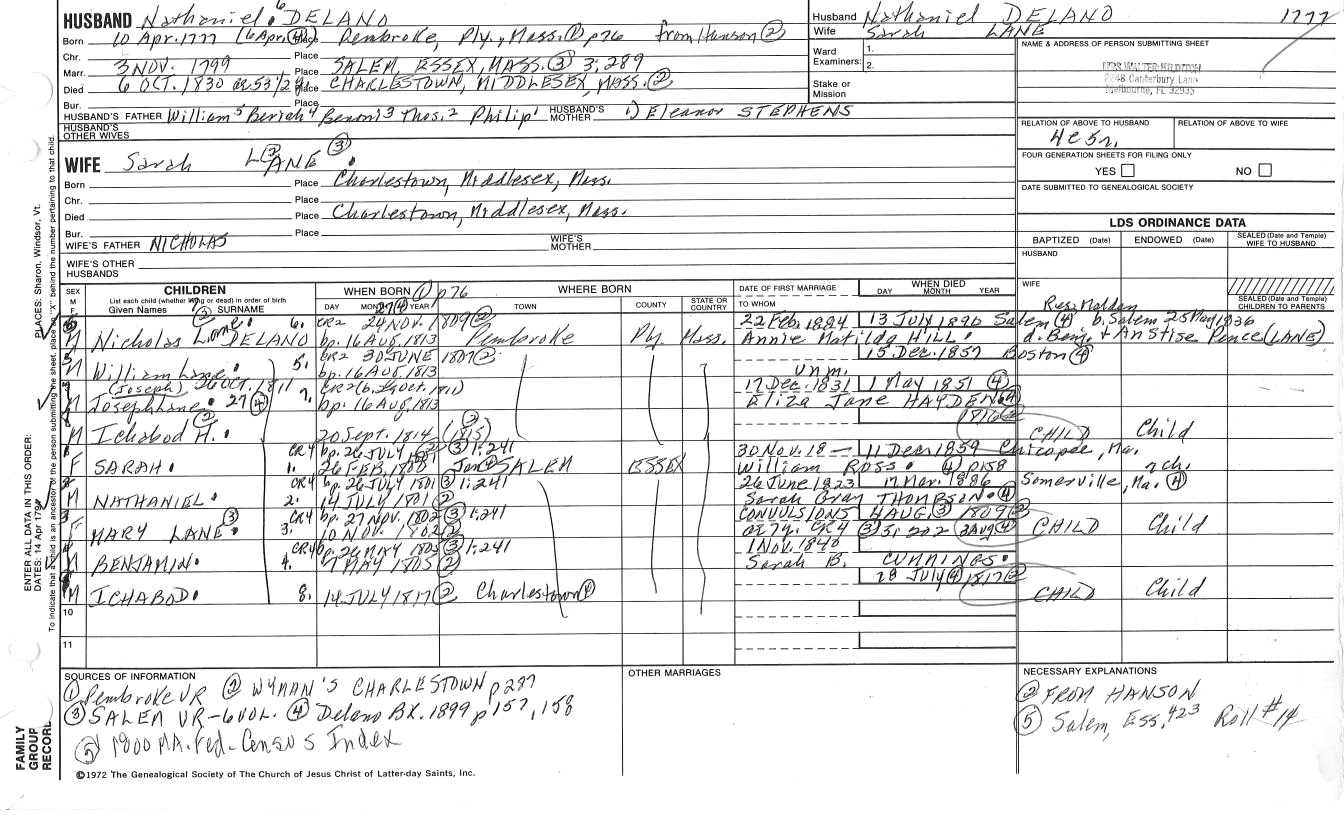 HUSBAND Nathaniel 6 DELANO
Born 10 Apr. 1777 (6 Apr. ④) Place Pembroke, Ply., Mass. ① p76 from Hanson ②
Chr. Place
Marr. 3 NOV. 1799 Place SALEM ESSEX, MASS. ③ 3:289
Died 6 OCT. 1830 ae. 53 1/2 y. Place CHARLESTOWN, MIDDLESEX, MASS. ②
Bur. Place
HUSBAND'S FATHER William 5 Beriah 4 Benoni 3 Thos. 2 Philip 1 HUSBAND'S MOTHER 1) Eleanor STEPHENS
HUSBAND'S OTHER WIVES
Husband Nathaniel DELANO 1777
Wife Sarah LANE
Ward Examiners: 1.
2.
Stake or Mission
NAME & ADDRESS OF PERSON SUBMITTING SHEET
2248 Canterbury Lane
Melbourne, FL 32935
RELATION OF ABOVE TO HUSBAND
4c5r.
RELATION OF ABOVE TO WIFE
FOUR GENERATION SHEETS FOR FILING ONLY
YES NO
DATE SUBMITTED TO GENEALOGICAL SOCIETY
WIFE Sarah LANE ② ③
Born Place Charlestown, Middlesex, Mass.
Chr. Place
Died Place Charlestown, Middlesex, Mass.
Bur. Place
WIFE'S FATHER NICHOLAS WIFE'S MOTHER
WIFE'S OTHER HUSBANDS
LDS ORDINANCE DATA
BAPTIZED (Date) ENDOWED (Date) SEALED (Date and Temple) WIFE TO HUSBAND
HUSBAND
WIFE
SEALED (Date and Temple) CHILDREN TO PARENTS
SEX M F
CHILDREN
List each child (whether living or dead) in order of birth
Given Names SURNAME
WHEN BORN ① p76
DAY MONTH YEAR 27④
WHERE BORN
TOWN COUNTY STATE OR COUNTRY
DATE OF FIRST MARRIAGE
TO WHOM
WHEN DIED
DAY MONTH YEAR
M Nicholas Lane DELANO ② 6. CR2 24 NOV. 1809 ② bp. 16 AUG. 1813 Pembroke Ply. Mass. 22 Feb. 1884 Annie Matilda HILL. 13 July 1890 Salem ④ b. Salem 25 May 1836
Res. Malden
d. Benj. & Anstise Pence (LANE)
M William Lane. 5. CR2 30 JUNE 1807 ② bp. 16 AUG. 1813 unm. 15 Dec. 1857 Boston ④
(Joseph) 26 OCT. 1811
M Joseph Lane. 27 ④ 7. CR2 (b. 29 Oct. 1811) bp. 16 AUG. 1813 17 Dec. 1831 Eliza Jane HAYDEN ④ 1 May 1851 ④
M Ichabod H. ② 20 Sept. 1814 (1815) ② 1816 ② CHILD Child
F SARAH. 1. CR4 bp. 26 JULY ③ 1:241 26 FEB 1800 Jan ④ SALEM ESSEX 30 NOV. 18— William ROSS. ④ p158 11 Dec. 1859 Chicopee, Ma.
M NATHANIEL. 2. CR4 bp. 26 JULY 1801 ③ 1:241 14 JULY 1801 ② 26 June 1823 Sarah Gray THOMPSON. ④ 17 Mar. 1886 Somerville, Ma. ④ 7 ch.
F MARY LANE. ③ 3. CR4 bp. 27 NOV. 1802 ③ 1:241 10 NOV. 1802 ② CONVULSIONS ae 7y. CR4 ③ 5:202 4 AUG. ③ 1809 ② 3 Aug ④ CHILD Child
M BENJAMIN. 4. CR4 bp. 26 MAY 1805 ③ 1:241 7 MAY 1805 ② 1 NOV. 1840 Sarah B. CUMMINGS.
M ICHABOD. 8. 14 JULY 1817 ② Charlestown ④ 28 July ④ 1817 ② CHILD Child
10
11
SOURCES OF INFORMATION
① Pembroke VR ② WYMAN'S CHARLESTOWN p287
③ SALEM VR-6 VOL. ④ Delano BX. 1899 p157, 158
⑤ 1800 MA. Fed. Census Index
OTHER MARRIAGES
NECESSARY EXPLANATIONS
② FROM HANSON
⑤ Salem, Ess. 423 Roll #14
©1972 The Genealogical Society of The Church of Jesus Christ of Latter-day Saints, Inc.
FAMILY GROUP RECORD
ENTER ALL DATA IN THIS ORDER:
DATES: 14 Apr 1794
PLACES: Sharon, Windsor, Vt.
To indicate that a child is an ancestor of the person submitting the sheet, place an "X" behind the number pertaining to that child.